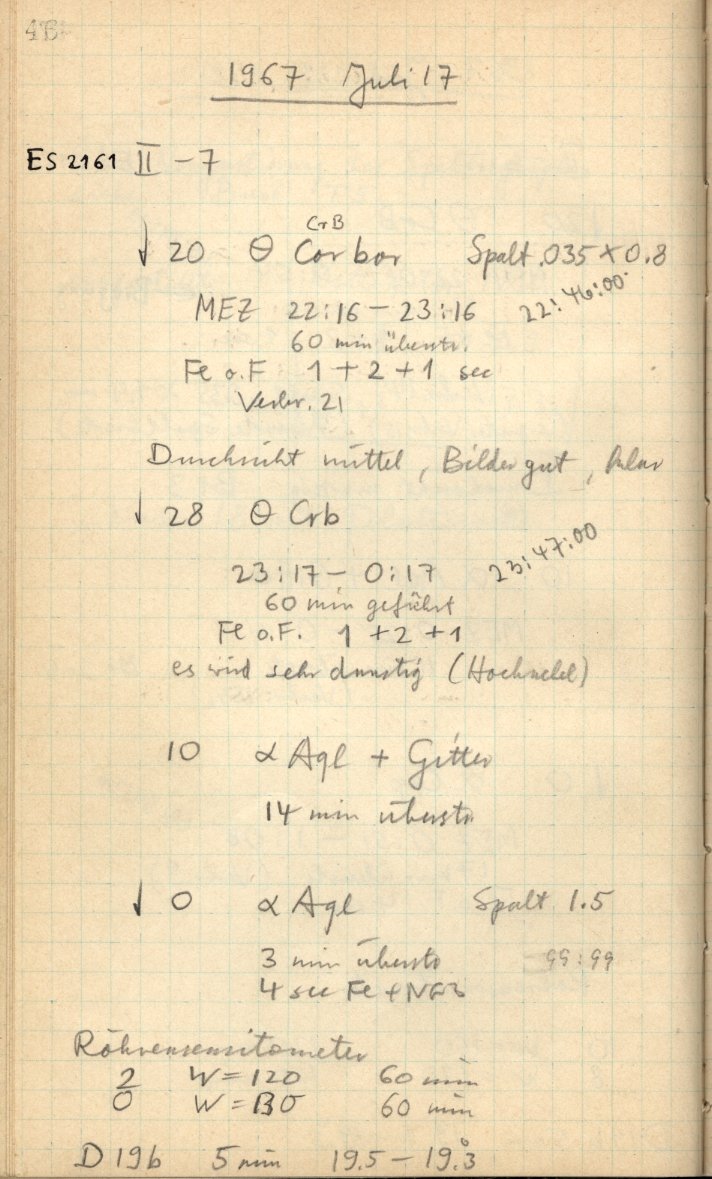 1967 Juli 17
ES 2161 II - 7
CrB
↓ 20 Θ Corbor Spalt .035 × 0.8
MEZ 22:16 - 23:16 22:46:00
60 min überstr.
Fe o.F 1 + 2 + 1 sec
Verbr. 21
Durchsicht mittel, Bilder gut, klar
↓ 28 Θ Crb
23:17 - 0:17 23:47:00
60 min geführt
Fe o.F. 1 + 2 + 1
es wird sehr dunstig (Hochnebel)
10 α Aql + Gitter
14 min überstr
↓ 0 α Aql Spalt 1.5
3 min überstr 99:99
4 sec Fe +
Röhrensensitometer
2 W = 120 60 min
0 W = 130 60 min
D 19b 5 min 19.5 - 19.3°